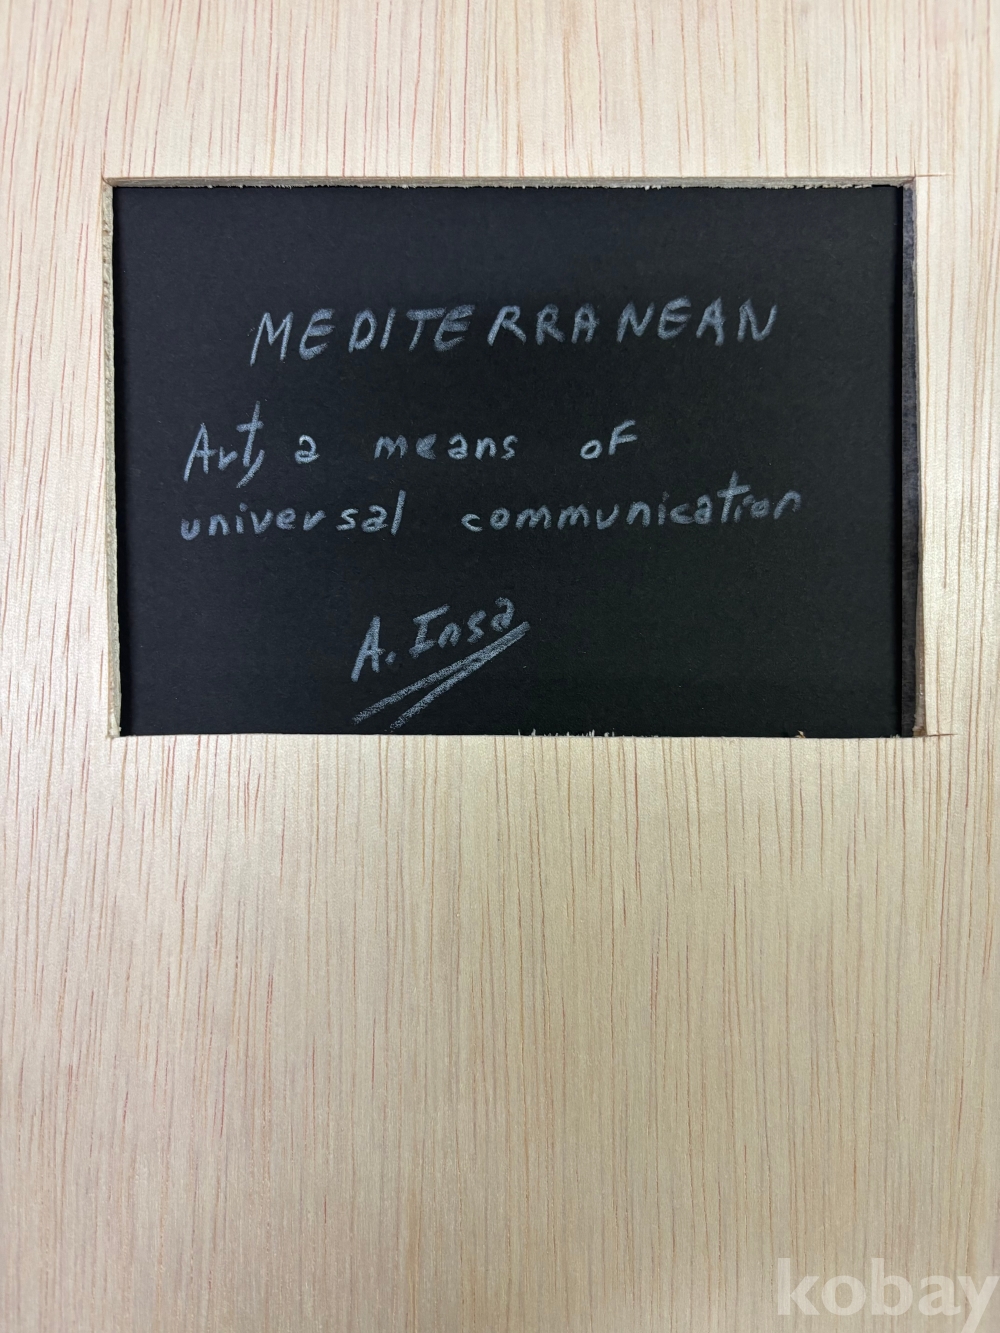 MEDITERRANEAN
Art, a means of
universal communication
A. Insa
kobay